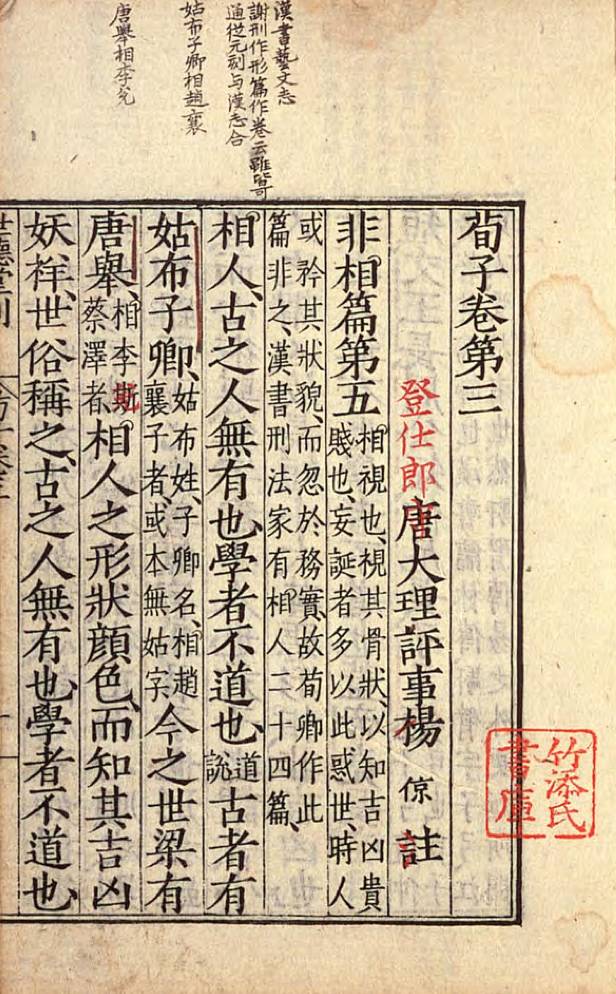 漢書藝文志
謝刑作形篇作卷云
通從元刻与漢志合
姑布子卿相趙襄
唐舉相李兌
荀子卷第三
登仕郎唐大理評事楊倞註
非相篇第五
相視也、視其骨狀、以知吉凶貴
賤也、妄誕者多以此惑世、時人
或矜其狀貌、而忽於務實、故荀卿作此
篇非之、漢書刑法家有相人二十四篇、
相人、古之人無有也、學者不道也、
道
說
古者有
姑布子卿、
姑布姓、子卿名、相趙
襄子者、或本無姑字
今之世梁有
唐舉、
相李斯
蔡澤者、
相人之形狀顏色、而知其吉凶
妖祥、世俗稱之、古之人無有也、學者不道也
竹添氏
書庫